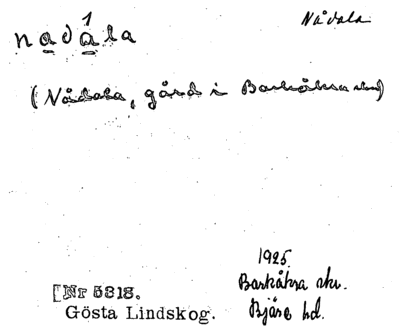 Nådala
nadála
(Nådala, gård i Barkåkra skn)
1925.
Barkåkra skn.
Bjäre hd.
[Nr 5318.
Gösta Lindskog.